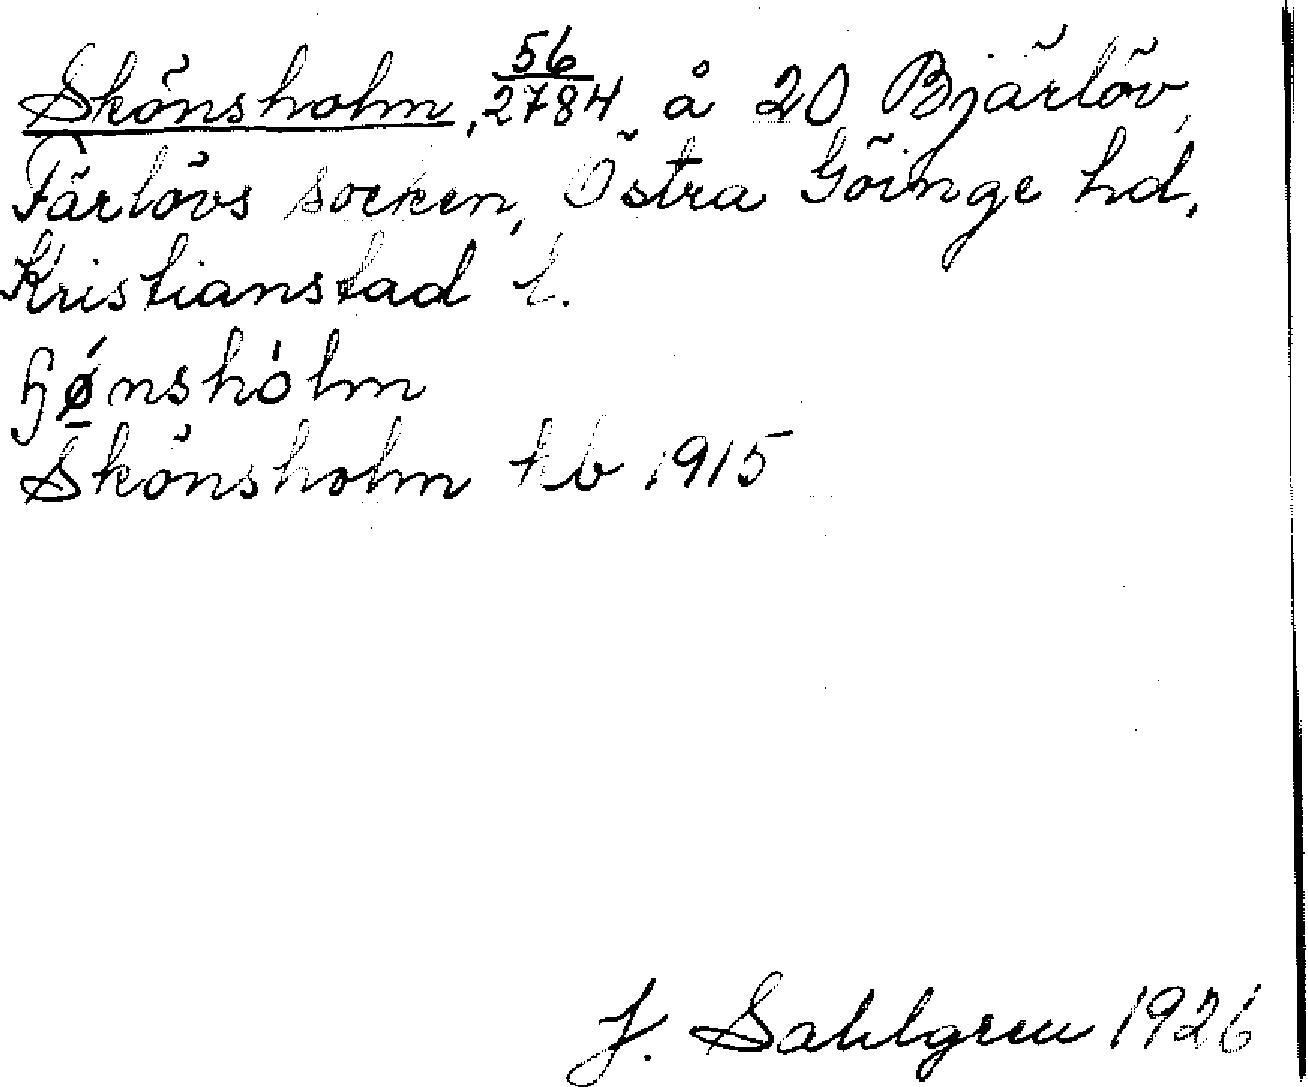 Skönsholm, 56/2784 å 20 Bjärlöv,
Färlövs socken, Östra Göinge hd,
Kristianstad l.
ɧǿ̠nshòlm
Skönsholm kb 1915
J. Sahlgren 1926